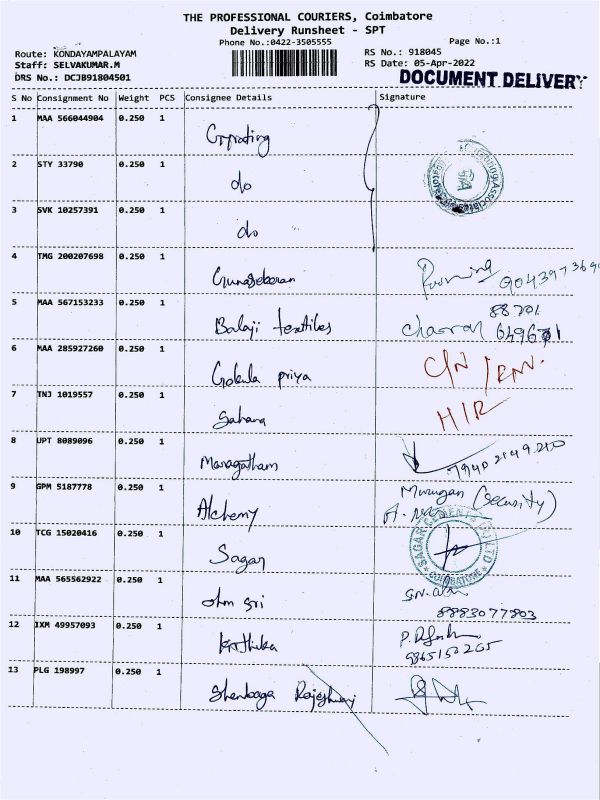 THE PROFESSIONAL COURIERS, Coimbatore
Delivery Runsheet - SPT
Phone No.:0422-3505555
Page No.:1
Route: KONDAYAMPALAYAM
RS No.: 918045
Staff: SELVAKUMAR.M
RS Date: 05-Apr-2022
DRS No.: DCJB91804501
DOCUMENT DELIVERY
S No Consignment No Weight PCS Consignee Details Signature
1 MAA 566044904 0.250 1
2 STY 33790 0.250 1 do
3 SVK 10257391 0.250 1 do
4 TMG 200207698 0.250 1 Gunasekaran
5 MAA 567153233 0.250 1 Balaji textiles 88701
6 MAA 285927260 0.250 1 Gokula priya
7 TNJ 1019557 0.250 1 Sahana
8 UPT 8089096 0.250 1 Maragatham
9 GPM 5187778 0.250 1 Alchemy Murugan (Security)
10 TCG 15020416 0.250 1 Sagar SAGAR CEMENTS PVT LTD COIMBATORE
11 MAA 565562922 0.250 1 ohm sri 8883077803
12 IXM 49957093 0.250 1 9865150265
13 PLG 198997 0.250 1 Shenbaga Rajeshwari